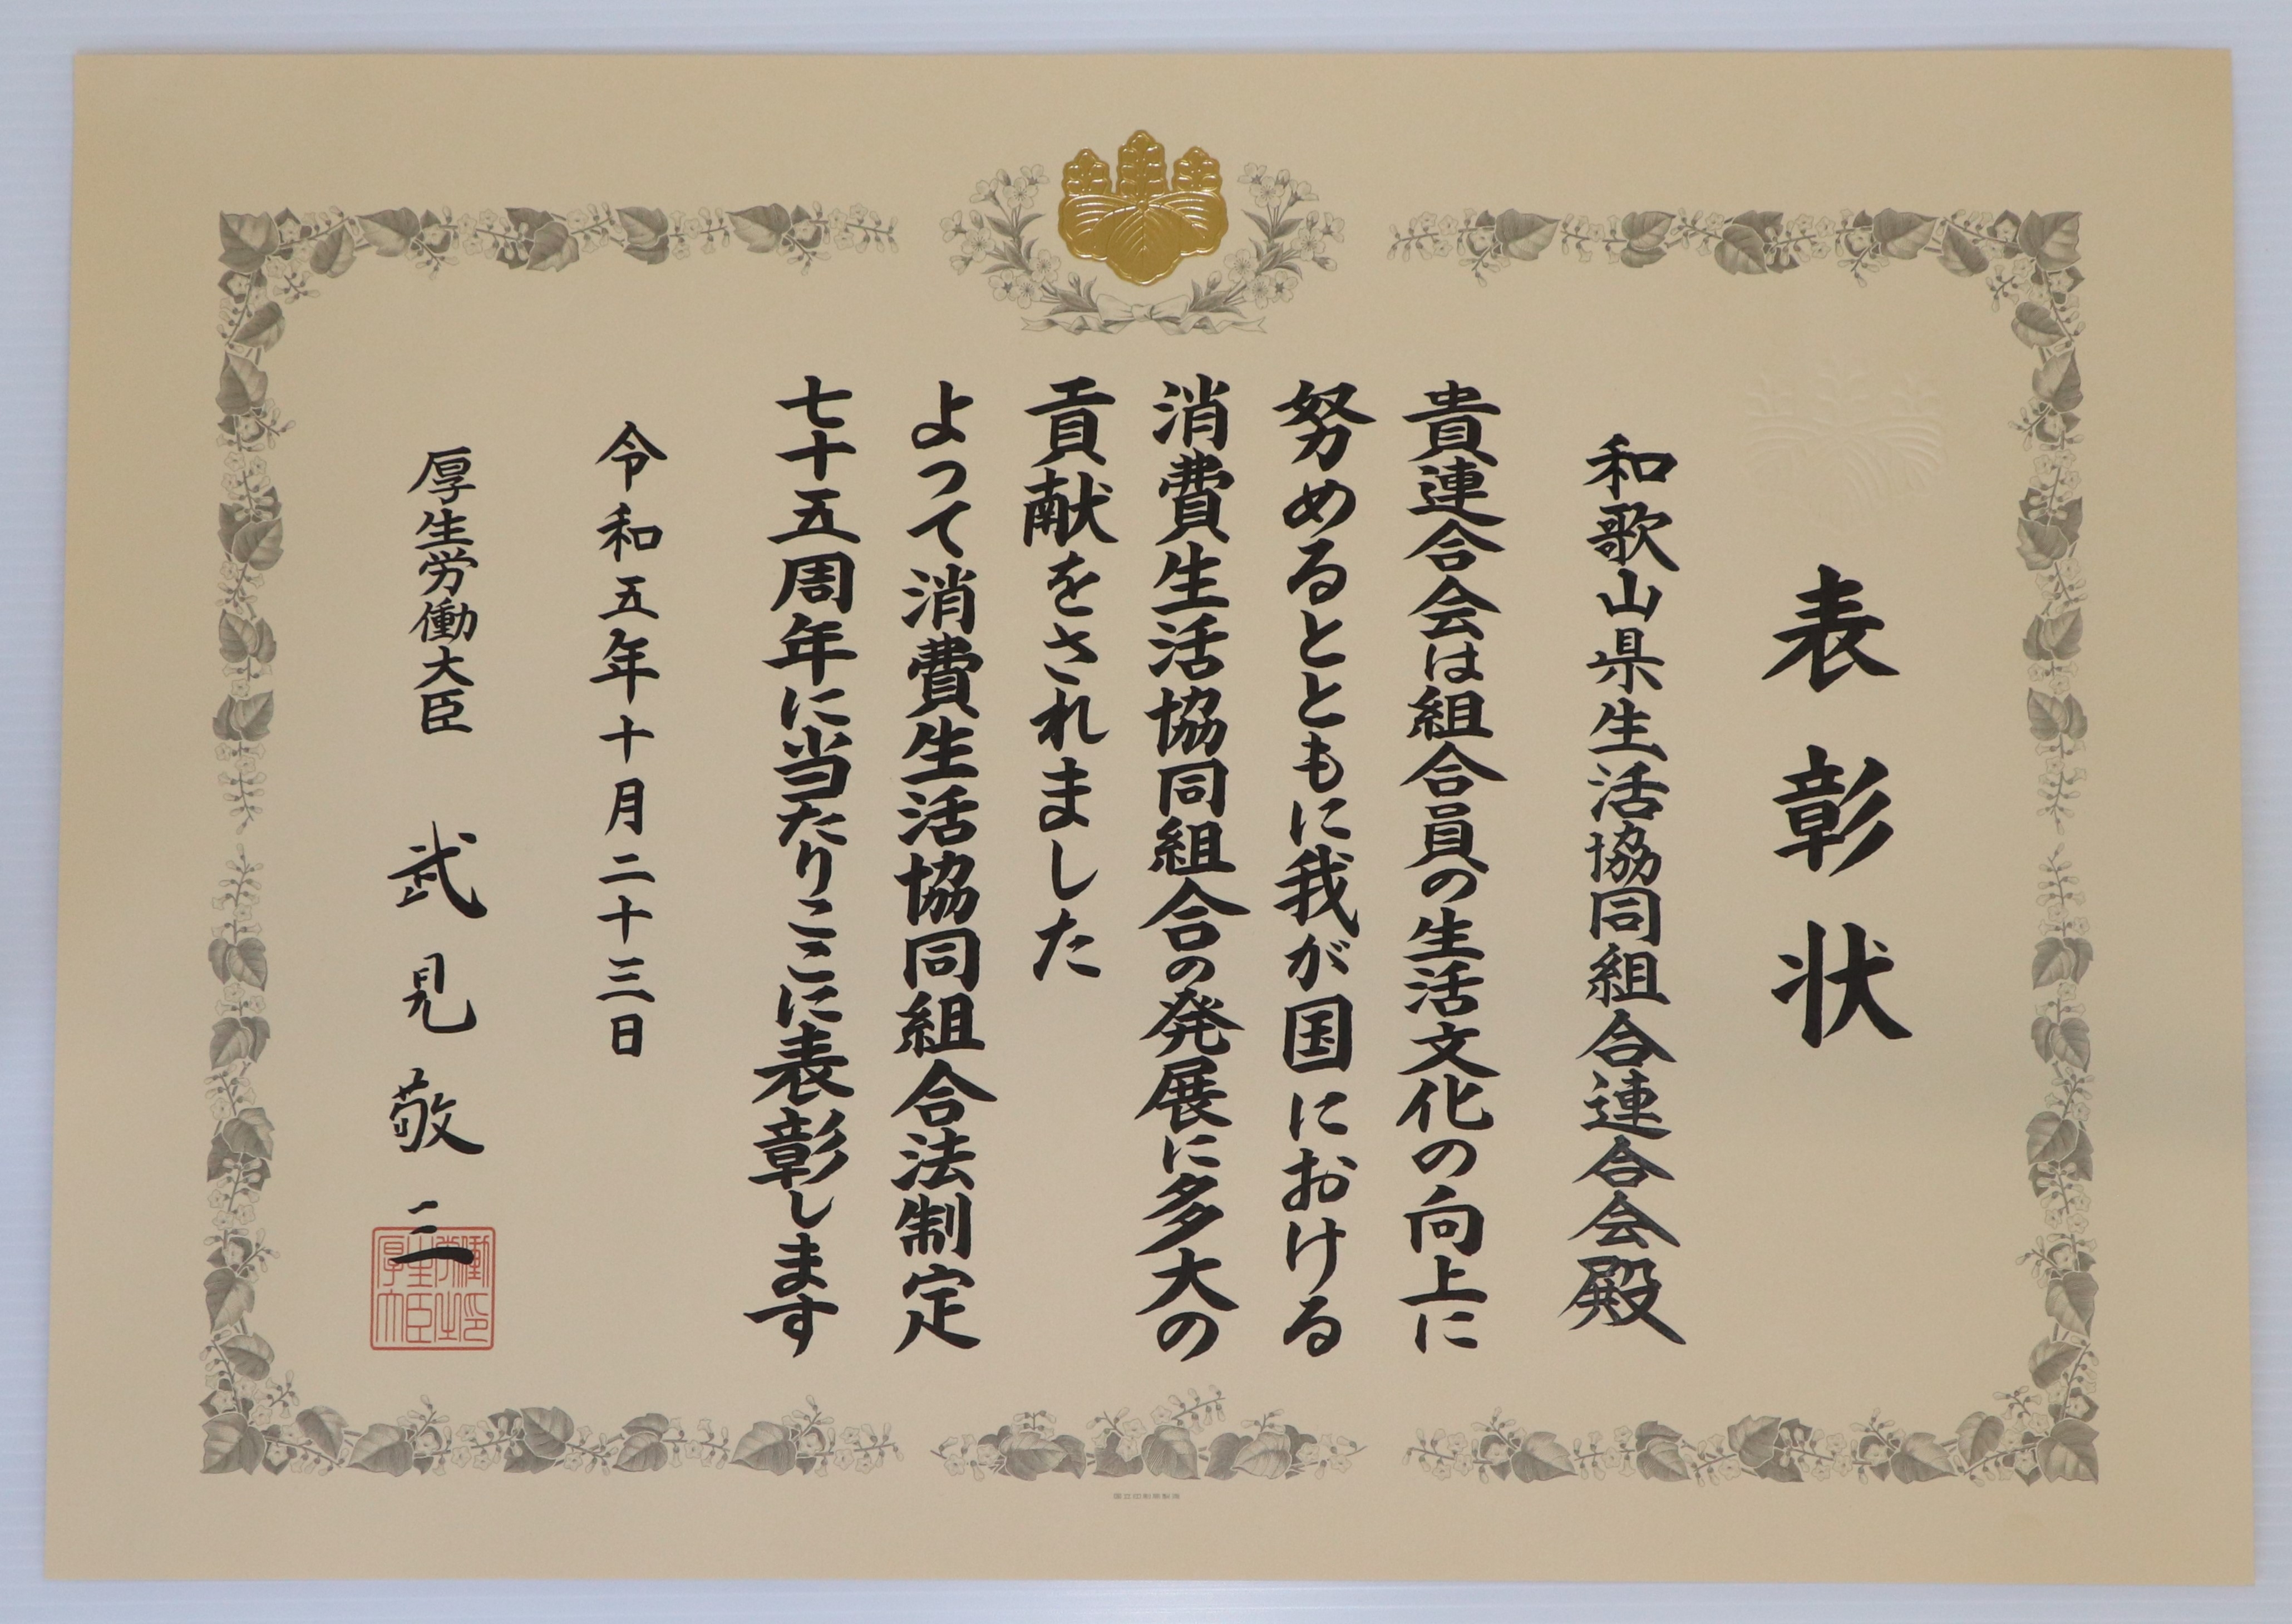 表彰状
和歌山県生活協同組合連合会殿
貴連合会は組合員の生活文化の向上に
努めるとともに我が国における
消費生活協同組合の発展に多大の
貢献をされました
よって消費生活協同組合法制定
七十五周年に当たりここに表彰します
令和五年十月二十三日
厚生労働大臣 武見敬三
国立印刷局製造